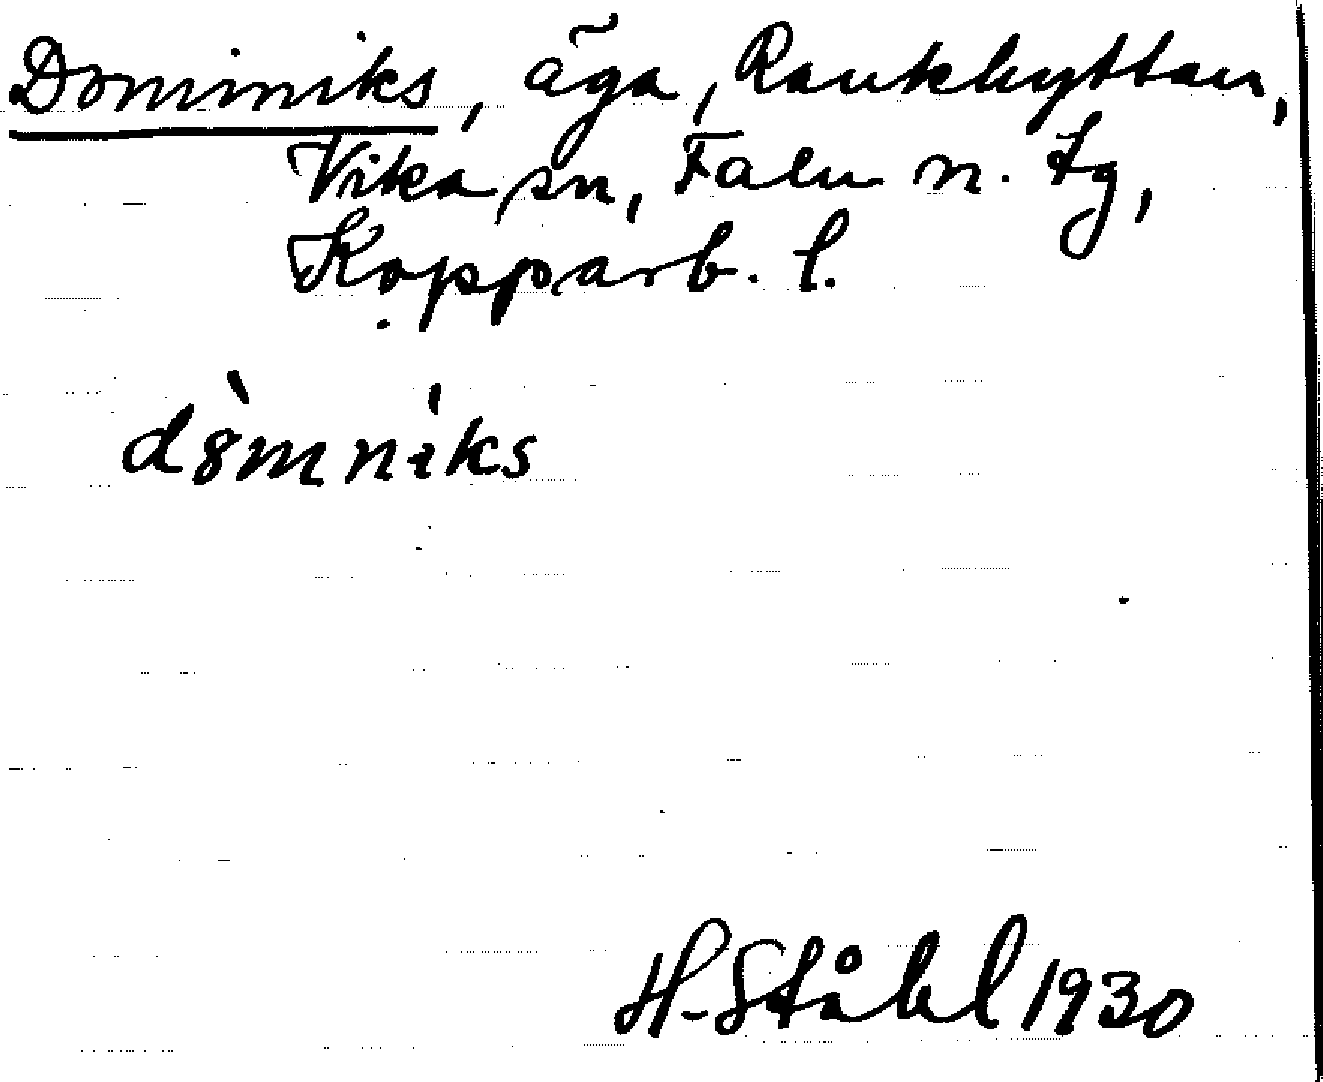 Dominiks, äga, Rankhyttan,
Vika sn, Falu n. tg,
Kopparb. l.
dò̀mnìks
H. Ståhl 1930